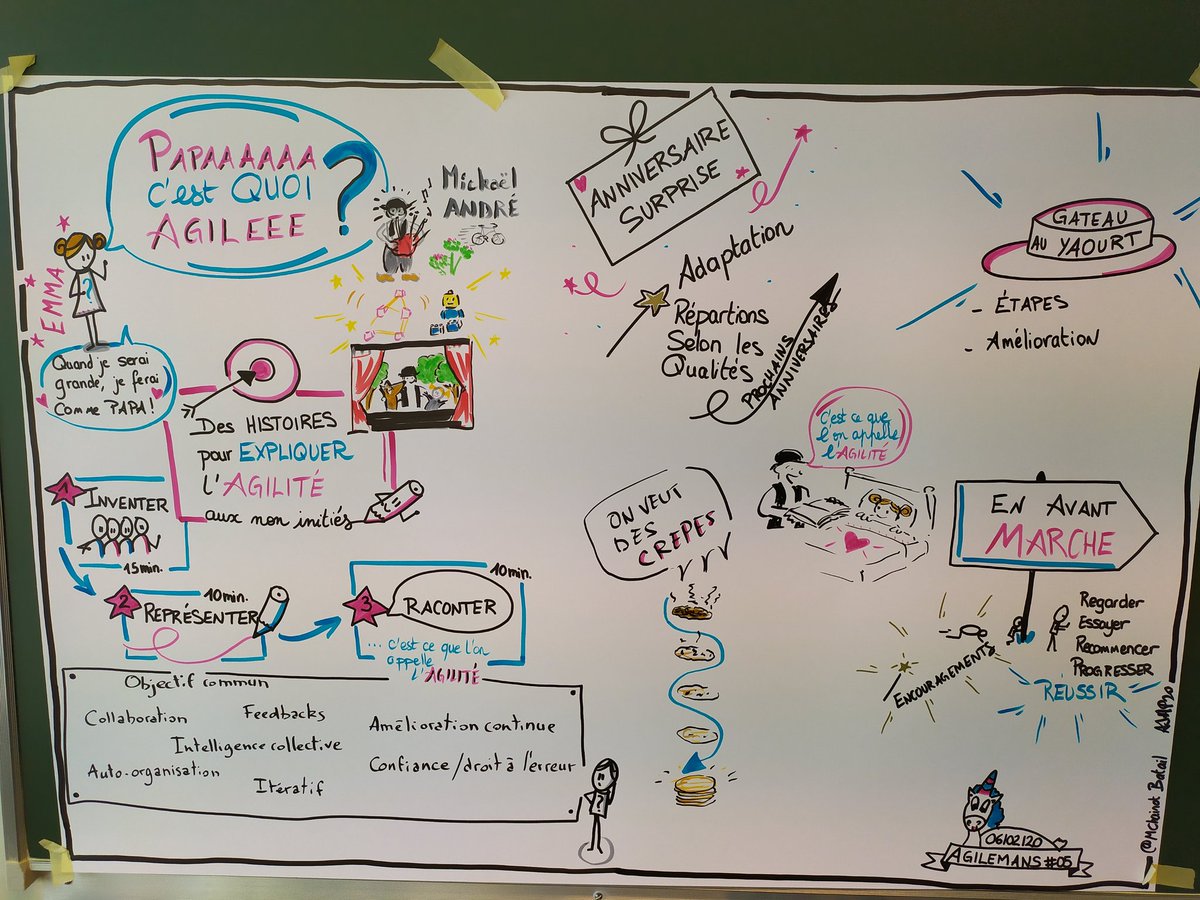 PAPAAAAAA
C'EST QUOI
AGILEEE ?
EMMA
?
Mickaël
ANDRÉ
Quand je serai
grande, je ferai
Comme PAPA !
Des HISTOIRES
pour EXPLIQUER
L'AGILITÉ
aux non initiés
1
INVENTER
15 min.
2
10 min.
REPRÉSENTER
3
10 min.
RACONTER
... c'est ce que l'on
appelle
L'AGILITÉ
Objectif commun
Collaboration
Feedbacks
Amélioration continue
Intelligence collective
Auto-organisation
Confiance/droit à l'erreur
Itératif
?
ANNIVERSAIRE
SURPRISE
Adaptation
Répartions
Selon les
Qualités
PROCHAINS
ANNIVERSAIRES
GATEAU
AU YAOURT
- ÉTAPES
- Amélioration
C'est ce que
l'on appelle
l'AGILITÉ
ON VEUT
DES
CREPES
EN AVANT
MARCHE
Regarder
Essayer
Recommencer
PROGRESSER
RÉUSSIR
ENCOURAGEMENTS
06/02/20
AGILEMANS #05